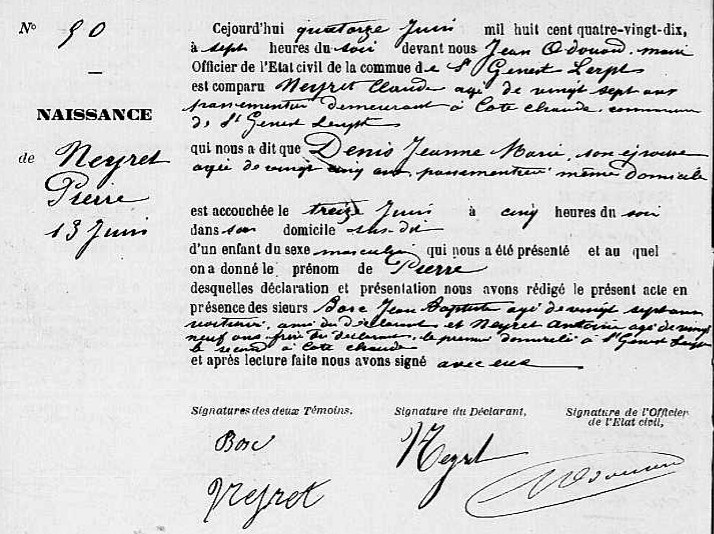 N° 90
NAISSANCE
de Neyret
Pierre
13 Juin
Cejourd'hui quatorze Juin mil huit cent quatre-vingt-dix,
à sept heures du soir devant nous Jean Odouard, maire
Officier de l'Etat civil de la commune de St Genest Lerpt
est comparu Neyret Claude agé de vingt sept ans
passementier demeurant à Cote chaude commune
de St Genest Lerpt
qui nous a dit que Denis Jeanne Marie, son épouse
agée de vingt cinq ans passementière même domicile
est accouchée le treize Juin à cinq heures du soir
dans son domicile sus dit
d'un enfant du sexe masculin qui nous a été présenté et au quel
on a donné le prénom de Pierre
desquelles déclaration et présentation nous avons rédigé le présent acte en
présence des sieurs Bosc Jean Baptiste agé de vingt sept ans
voiturier, ami du déclarant et Neyret Antoine agé de vingt
neuf ans frère du déclarant, le premier domicilié à St Genest Lerpt
le second à Cote chaude
et après lecture faite nous avons signé avec eux
Signatures des deux Témoins, Signature du Déclarant, Signature de l'Officier
de l'Etat civil,
Bosc
Neyret
Neyret
Odouard